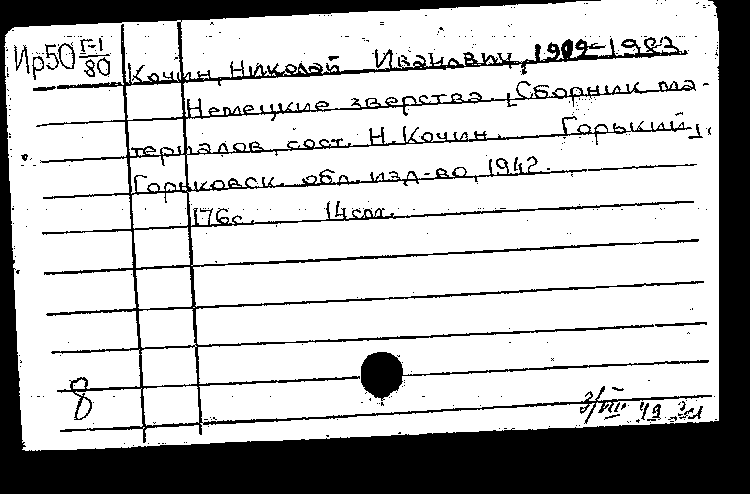 Ир50 Г-1/80
Кочин, Николай Иванович, 1902-1983.
Немецкие зверства. Сборник ма-
териалов, сост. Н. Кочин. Горький,
Горьковск. обл. изд-во, 1942.
176с. 14см.
8
3/VII 49